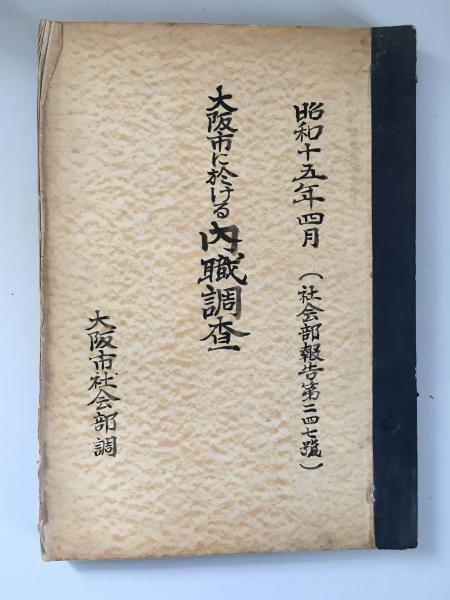 昭和十五年四月（社会部報告第二四七號）
大阪市に於ける内職調査
大阪市社会部調